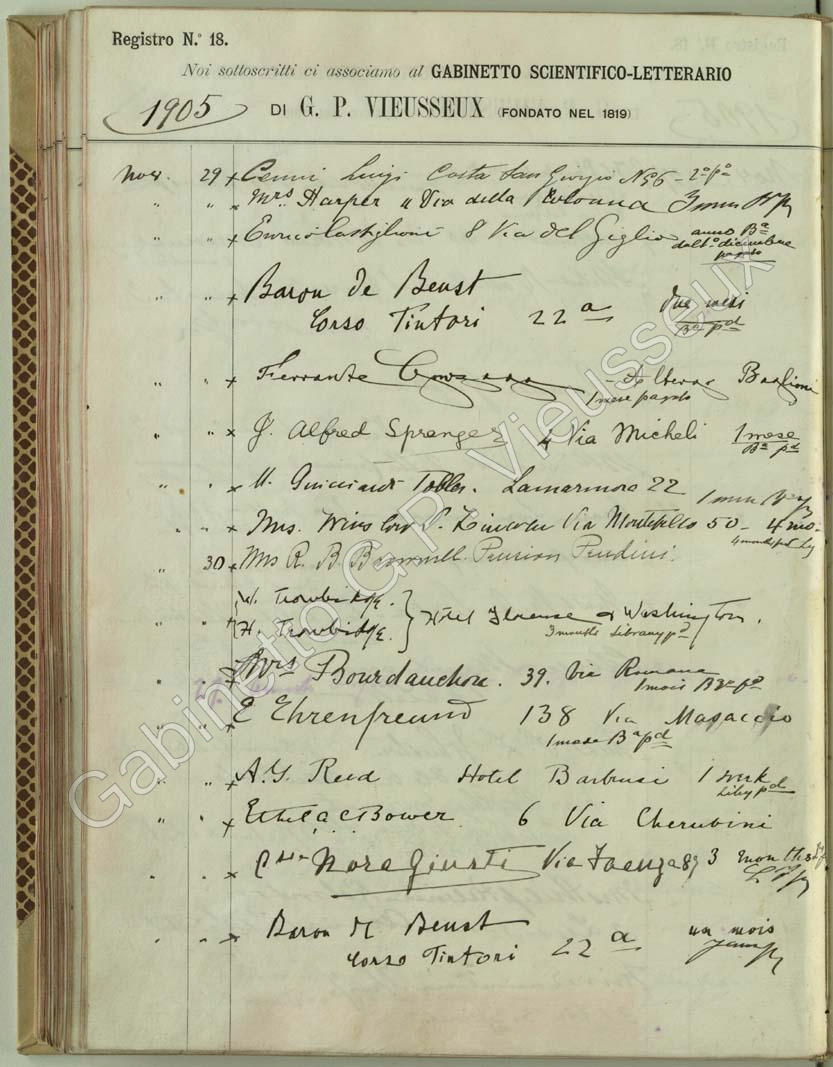 Registro N.° 18.
Noi sottoscritti ci associamo al GABINETTO SCIENTIFICO-LETTERARIO
1905 DI G. P. VIEUSSEUX (FONDATO NEL 1819)
Nov. 29 x Cenni Luigi Costa San Giorgio N° 6 - 2° p°
" " x Mrs Harper 4 Via della Colonna 3
" " x Enrico Castiglioni 8 Via del Giglio anno Ba
dal 1° dicembre
pagato
" " x Baron de Beust due mesi
Corso Tintori 22 a Ba pd
" " x Ferrante Gonzaga Baglioni
1 mese pagato
" " x J. Alfred Spranger 4 Via Micheli 1 mese
Ba pd
" " x Tobler. Lamarmora 22
" " x Mrs. Winslow Lincoln Via Montebello 50 - 4 mo.
" 30 x Mrs R. B. Pension Pendini.
W. Trowbridge.
" " x H. Trowbridge. } Hotel Florence & Washington.
3 months Library pd
" x Mrs Bourdauchon. 39. Via Romana
1 mois Ba pd
" " x E Ehrenfreund 138 Via Masaccio
1 mese Ba pd
" " x A. G. Reed Hotel Barbesi 1 week
Liby pd
" " x Ethel A C Bower 6 Via Cherubini
" " x Nora Giusti Via Faenza 89 3 months
" " x Baron de Beust un mois
Corso Tintori 22 a
Gabinetto G.P. Vieusseux